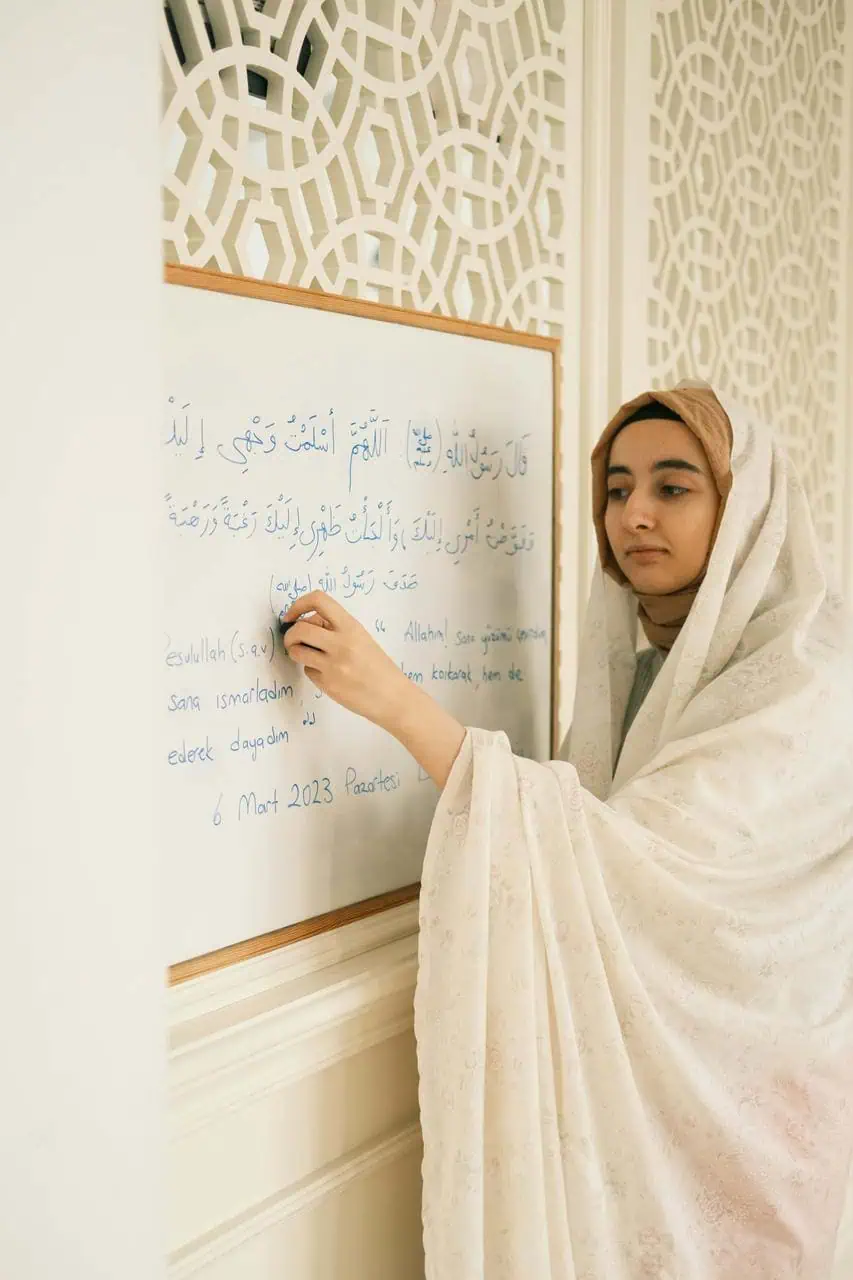 قَالَ رَسُولُ اللهِ (ﷺ) اَللّٰهُمَّ أَسْلَمْتُ وَجْهِي إِلَيْكَ
وَفَوَّضْتُ أَمْرِي إِلَيْكَ وَأَلْجَأْتُ ظَهْرِي إِلَيْكَ رَغْبَةً وَرَهْبَةً
صَدَقَ رَسُولُ اللهِ
esulullah (s.a.v) " Allahım! Sana yüzümü
sana ısmarladım hem korkarak, hem de
ederek dayadım "
6 Mart 2023 Pazartesi